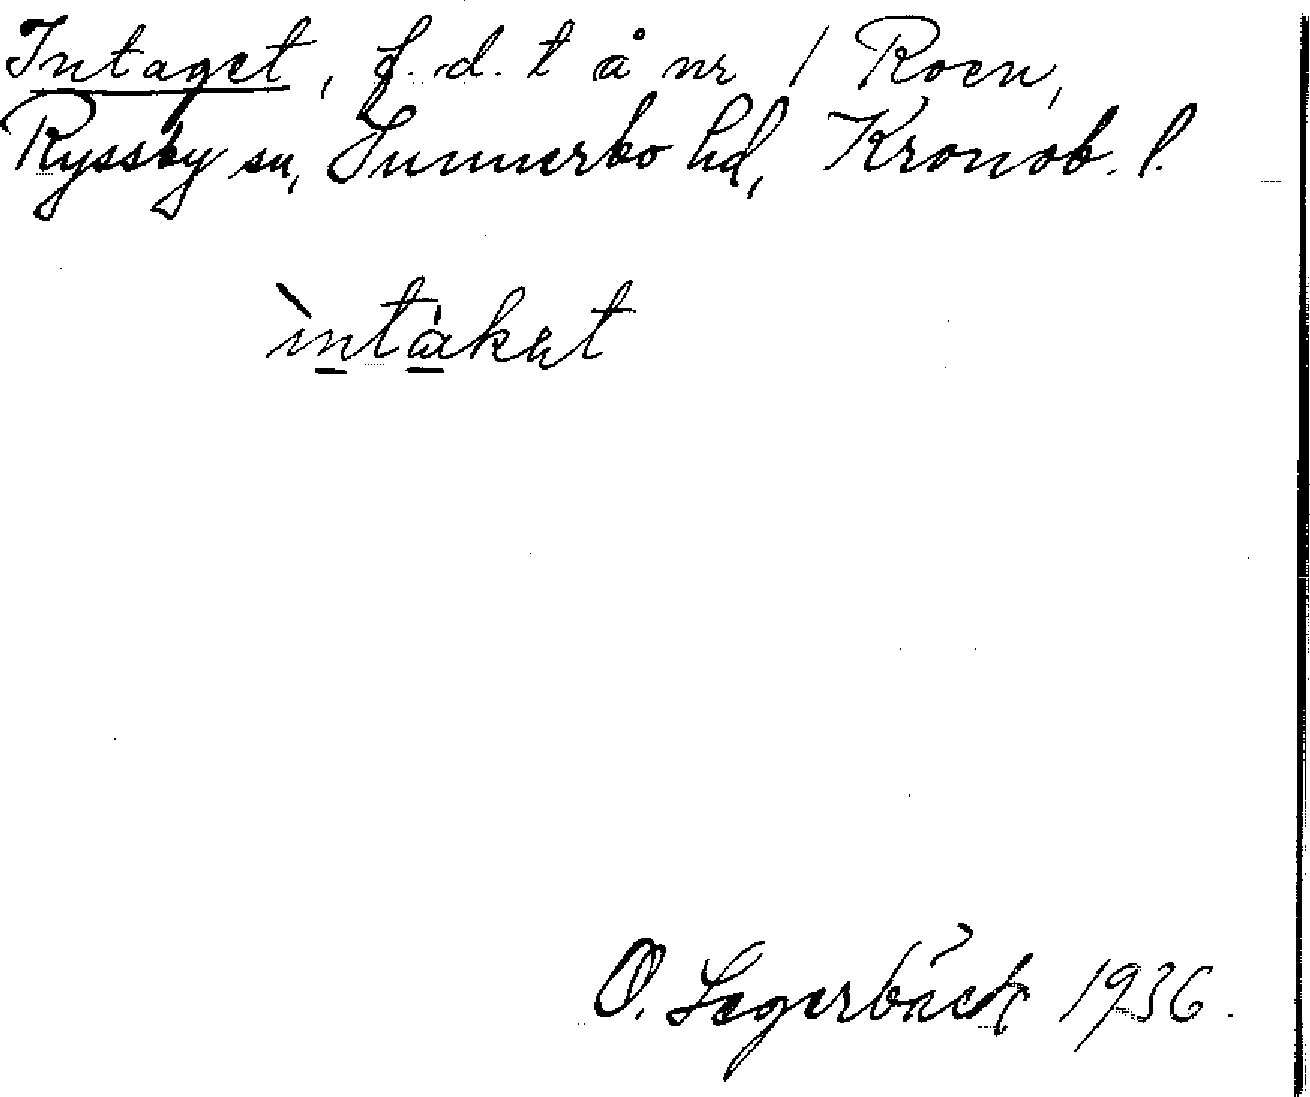 Intaget, f. d. t å nr 1 Roen,
Ryssby sn, Sunnerbo hd, Kronob. l.
ìntàkət
O. Segerbäck 1936.